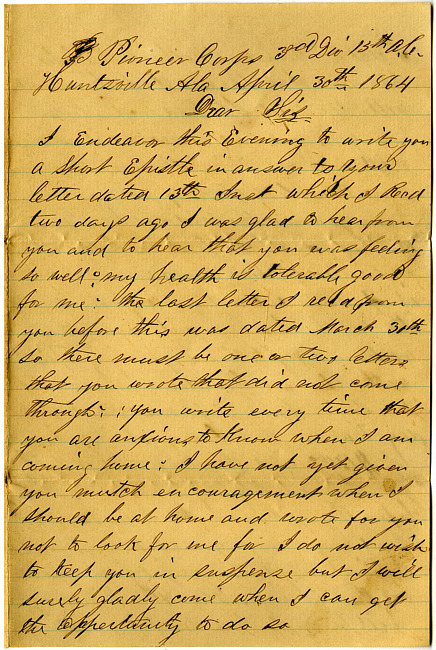 B Pioneer Corps 3rd Div 15th A.C.
Huntsville Ala April 30th 1864
Dear Sis
I Endeavor this Evening to write you
a short Epistle in answer to your
letter dated 13th Inst which I Recd
two days ago I was glad to hear from
you and to hear that you was feeling
so well: my health is tolerable good
for me: the last letter I recd from
you before this was dated March 30th
so there must be one or two letters
that you wrote that did not come
through: : you write every time that
you are anxious to Know when I am
coming home: I have not yet given
you mutch encouragement when I
should be at home and wrote for you
not to look for me for I do not wish
to keep you in suspense but I will
surely gladly come when I can get
the opportunity to do so